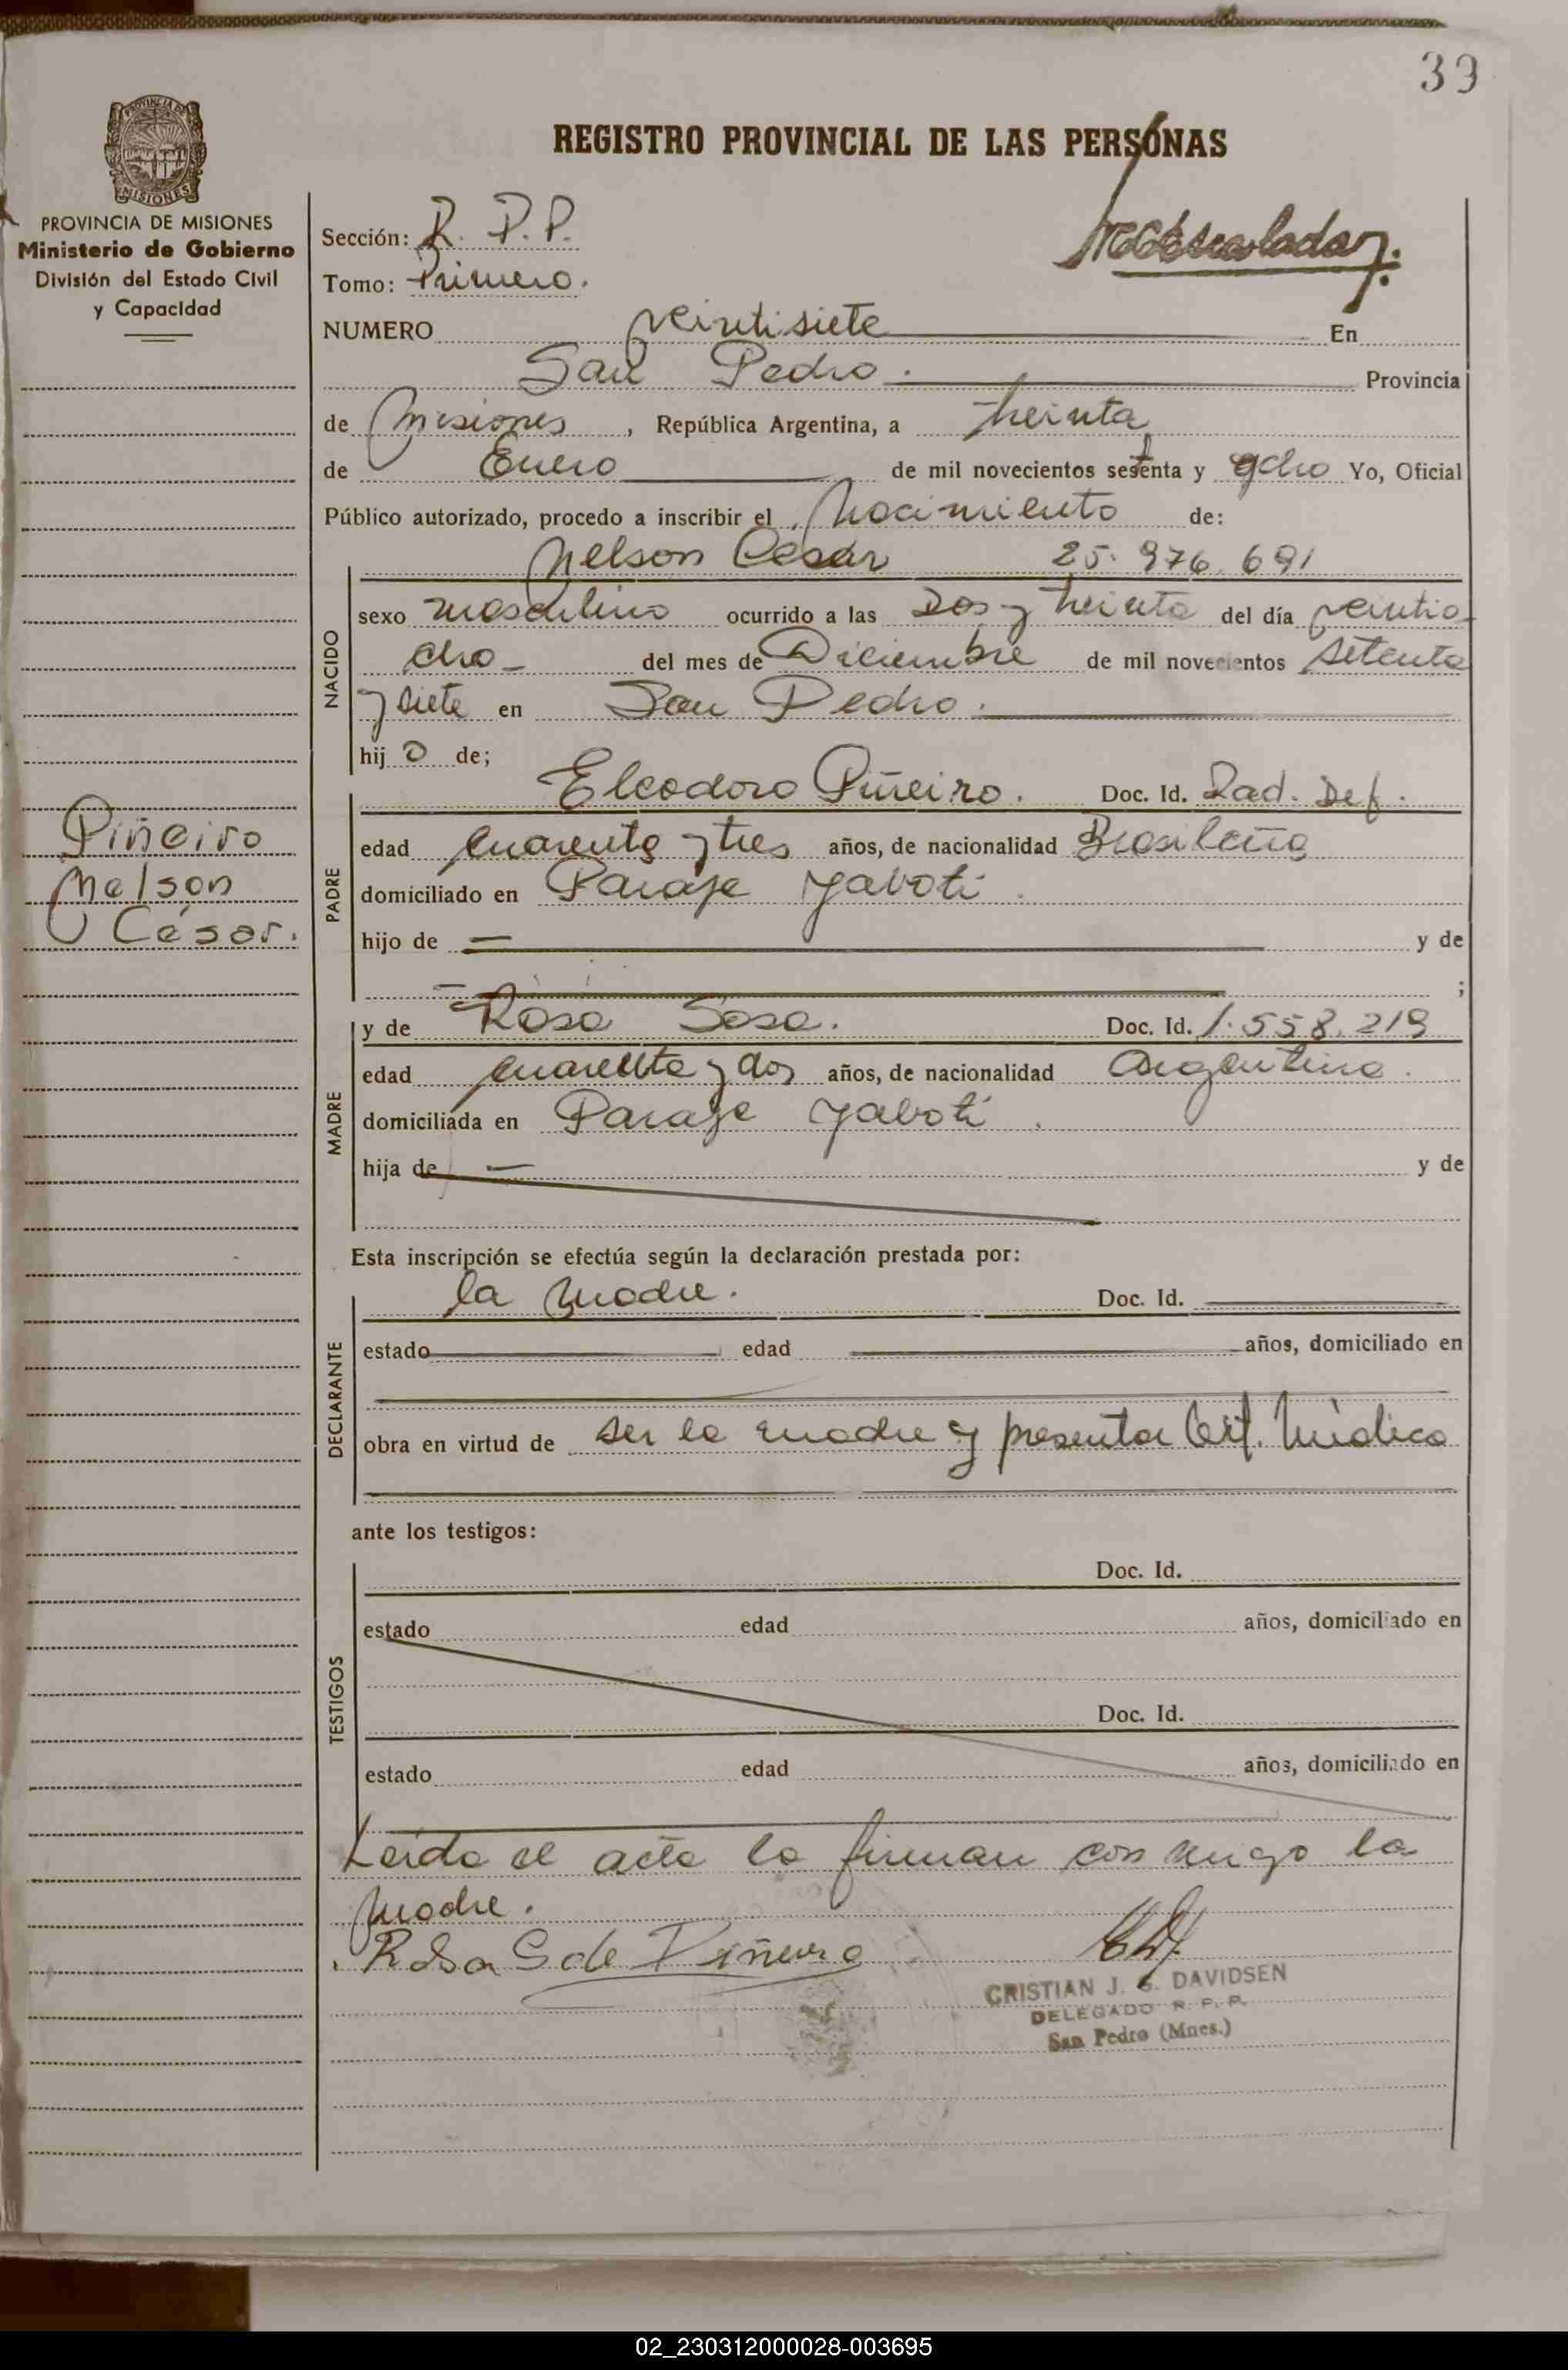 39
PROVINCIA DE MISIONES
PROVINCIA DE MISIONES
Ministerio de Gobierno
División del Estado Civil
y Capacidad
REGISTRO PROVINCIAL DE LAS PERSONAS
Sección: R. P. P.
Tomo: Primero.
NUMERO veintisiete En
San Pedro. Provincia
de Misiones, República Argentina, a treinta
de Enero de mil novecientos setenta y ocho Yo, Oficial
Público autorizado, procedo a inscribir el Nacimiento de:
Nelson Cesar 25.976.691
NACIDO
sexo masculino ocurrido a las Dos y treinta del día veintio-
cho- del mes de Diciembre de mil novecientos setenta
y siete en San Pedro.
hijo de;
PADRE
Eleodoro Piñeiro. Doc. Id. Rad. Def.
edad cuarenta y tres años, de nacionalidad Brasileña
domiciliado en Paraje Yaboti.
hijo de — y de
— ;
MADRE
y de Rosa Sosa. Doc. Id. 1.558.219
edad cuarenta y dos años, de nacionalidad Argentina.
domiciliada en Paraje Yaboti.
hija de — y de
Piñeiro
Nelson
César.
Esta inscripción se efectúa según la declaración prestada por:
DECLARANTE
la madre. Doc. Id.
estado edad años, domiciliado en
obra en virtud de ser la madre y presentar Cert. Médico
ante los testigos:
TESTIGOS
Doc. Id.
estado edad años, domiciliado en
Doc. Id.
estado edad años, domiciliado en
Leída el acta la firman conmigo la
madre.
Rosa S de Piñeiro
CRISTIAN J. C. DAVIDSEN
DELEGADO R. P. P.
San Pedro (Mnes.)
02_230312000028-003695